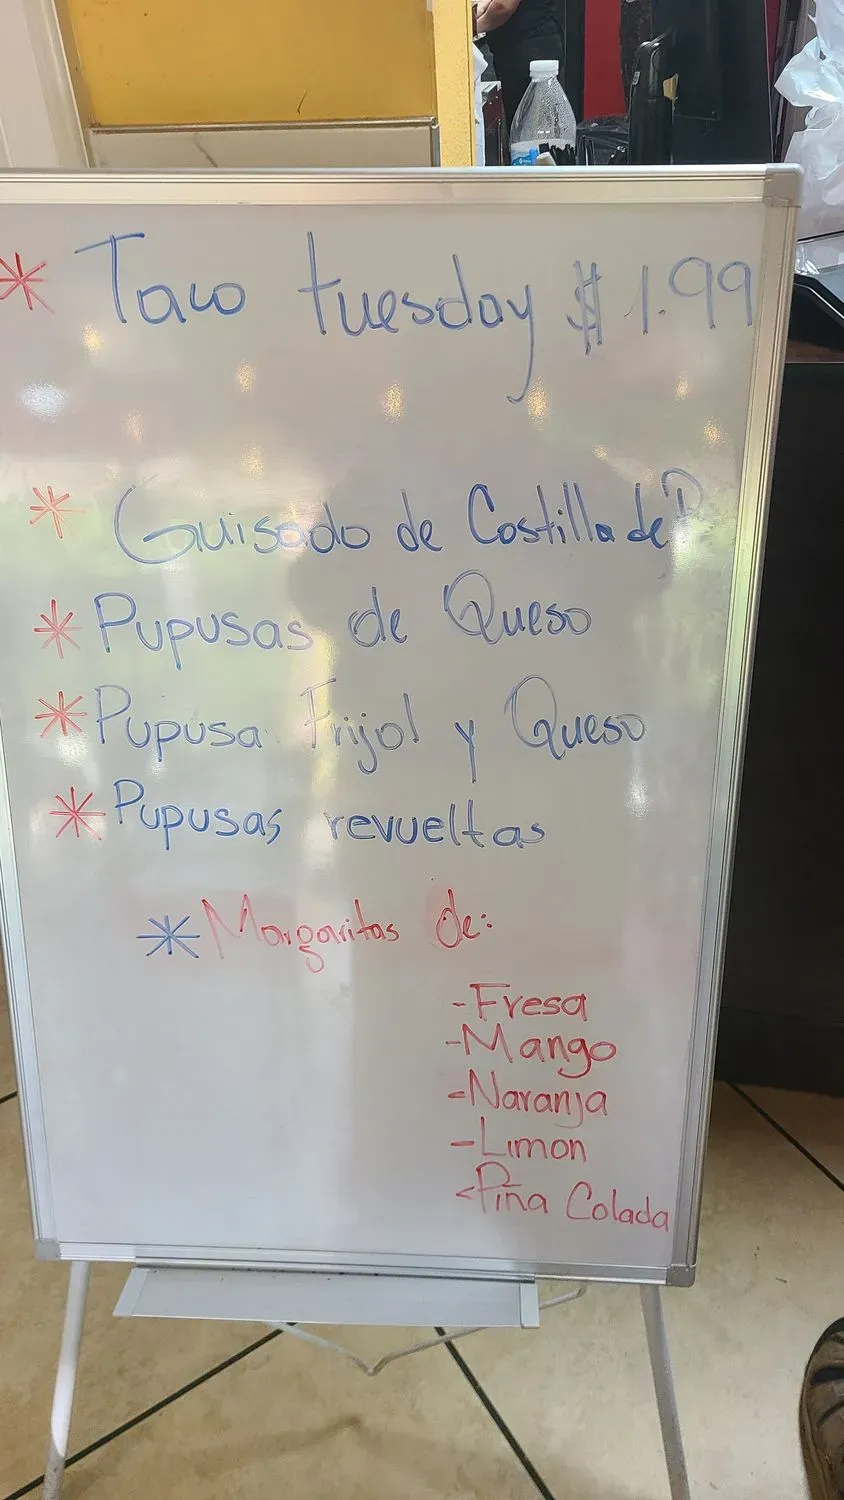 * Taco tuesday $1.99
* Guisado de Costilla de
* Pupusas de Queso
* Pupusa Frijol y Queso
* Pupusas revueltas
* Margaritas de:
- Fresa
- Mango
- Naranja
- Limon
- Piña Colada